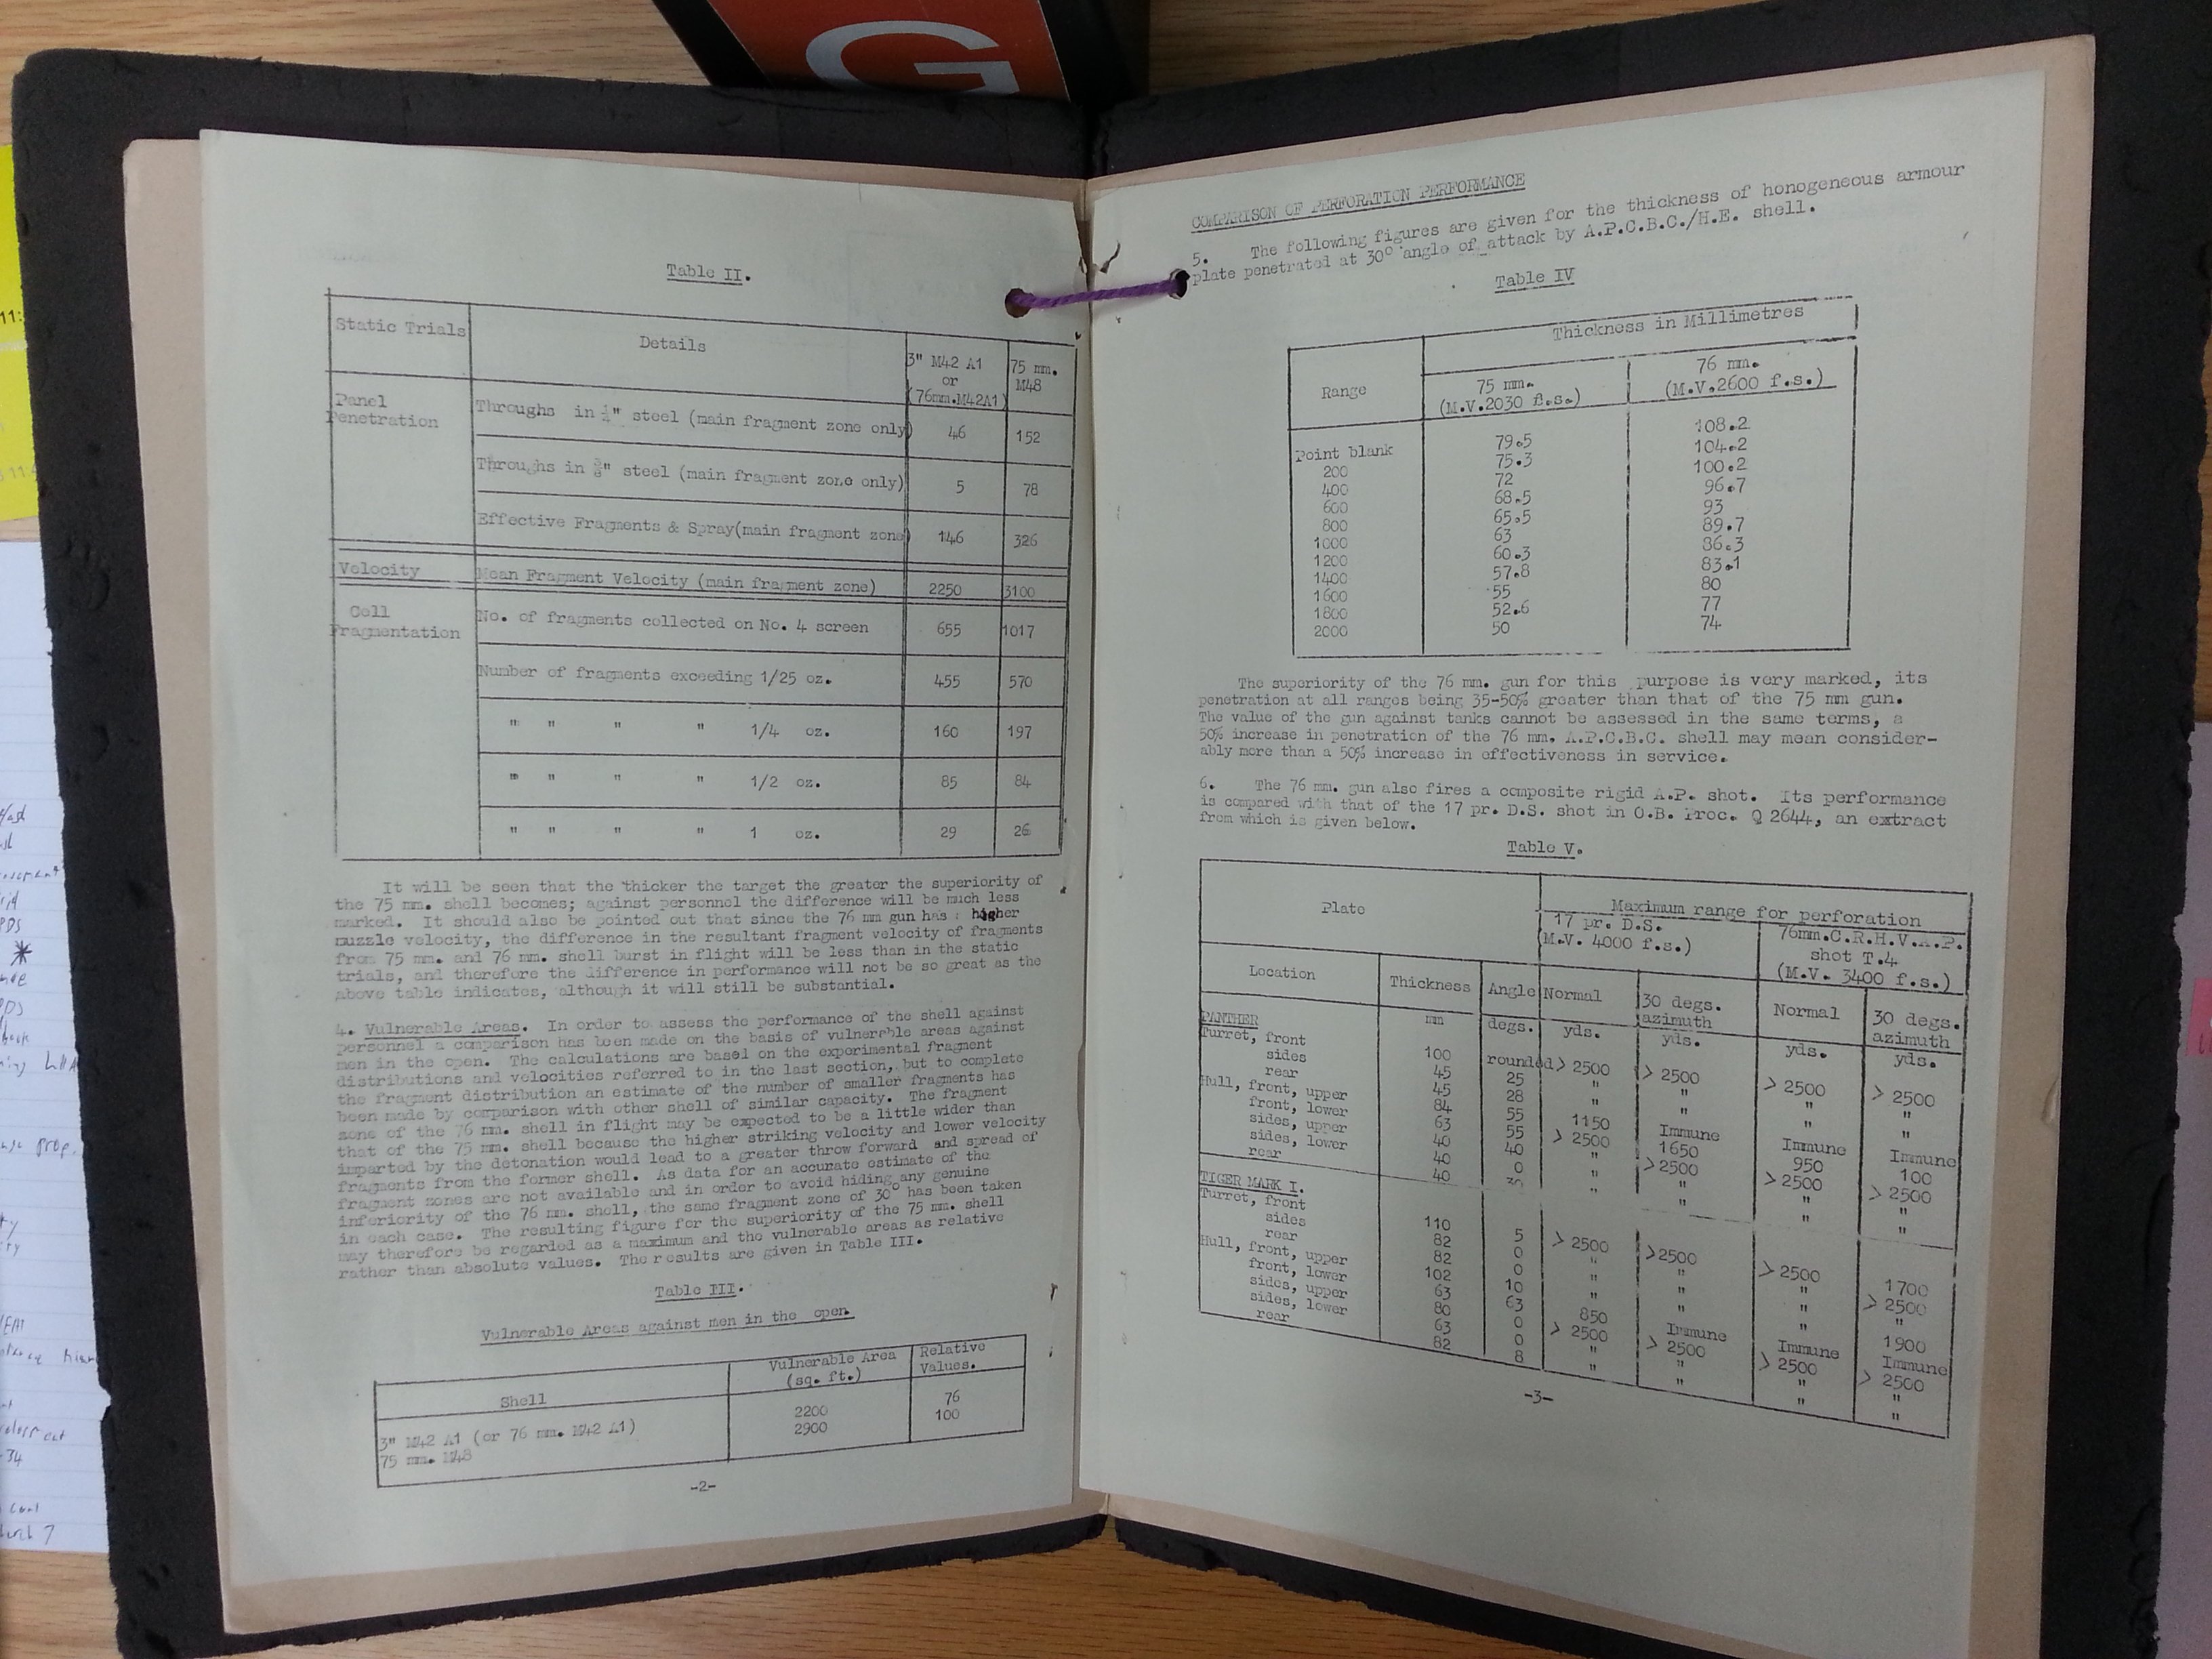 G
Table II.
Static Trials | Details | 3" M42 A1 or (76mm.M42A1) | 75 mm. M48
Panel Penetration | Throughs in ¼" steel (main fragment zone only) | 46 | 152
Throughs in ⅜" steel (main fragment zone only) | 5 | 78
Effective Fragments & Spray(main fragment zone) | 146 | 326
Velocity | Mean Fragment Velocity (main fragment zone) | 2250 | 3100
Cell Fragmentation | No. of fragments collected on No. 4 screen | 655 | 1017
Number of fragments exceeding 1/25 oz. | 455 | 570
" " " " 1/4 oz. | 160 | 197
" " " " 1/2 oz. | 85 | 84
" " " " 1 oz. | 29 | 26
It will be seen that the thicker the target the greater the superiority of
the 75 mm. shell becomes; against personnel the difference will be much less
marked. It should also be pointed out that since the 76 mm gun has : higher
muzzle velocity, the difference in the resultant fragment velocity of fragments
from 75 mm. and 76 mm. shell burst in flight will be less than in the static
trials, and therefore the difference in performance will not be so great as the
above table indicates, although it will still be substantial.
4. Vulnerable Areas. In order to assess the performance of the shell against
personnel a comparison has been made on the basis of vulnerable areas against
men in the open. The calculations are based on the experimental fragment
distributions and velocities referred to in the last section, but to complete
the fragment distribution an estimate of the number of smaller fragments has
been made by comparison with other shell of similar capacity. The fragment
zone of the 76 mm. shell in flight may be expected to be a little wider than
that of the 75 mm. shell because the higher striking velocity and lower velocity
imparted by the detonation would lead to a greater throw forward and spread of
fragments from the former shell. As data for an accurate estimate of the
fragment zones are not available and in order to avoid hiding any genuine
inferiority of the 76 mm. shell, the same fragment zone of 30° has been taken
in each case. The resulting figure for the superiority of the 75 mm. shell
may therefore be regarded as a maximum and the vulnerable areas as relative
rather than absolute values. The results are given in Table III.
Table III.
Vulnerable Areas against men in the open
Shell | Vulnerable Area (sq. ft.) | Relative Values.
3" M42 A1 (or 76 mm. M42 A1) | 2200 | 76
75 mm. M48 | 2900 | 100
-2-
COMPARISON OF PERFORATION PERFORMANCE
5. The following figures are given for the thickness of honogeneous armour
plate penetrated at 30° angle of attack by A.P.C.B.C./H.E. shell.
Table IV
Range | Thickness in Millimetres
75 mm. (M.V.2030 f.s.) | 76 mm. (M.V.2600 f.s.)
Point blank | 79.5 | 108.2
200 | 75.3 | 104.2
400 | 72 | 100.2
600 | 68.5 | 96.7
800 | 65.5 | 93
1000 | 63 | 89.7
1200 | 60.3 | 86.3
1400 | 57.8 | 83.1
1600 | 55 | 80
1800 | 52.6 | 77
2000 | 50 | 74
The superiority of the 76 mm. gun for this purpose is very marked, its
penetration at all ranges being 35-50% greater than that of the 75 mm gun.
The value of the gun against tanks cannot be assessed in the same terms, a
50% increase in penetration of the 76 mm. A.P.C.B.C. shell may mean consider-
ably more than a 50% increase in effectiveness in service.
6. The 76 mm. gun also fires a composite rigid A.P. shot. Its performance
is compared with that of the 17 pr. D.S. shot in O.B. Proc. Q 2644, an extract
from which is given below.
Table V.
Plate | Maximum range for perforation
17 pr. D.S. (M.V. 4000 f.s.) | 76mm.C.R.H.V.A.P. shot T.4 (M.V. 3400 f.s.)
Location | Thickness | Angle | Normal | 30 degs. azimuth | Normal | 30 degs. azimuth
mm | degs. | yds. | yds. | yds. | yds.
PANTHER
Turret, front | 100 | rounded | > 2500 | > 2500 | > 2500 | > 2500
sides | 45 | 25 | " | " | " | "
rear | 45 | 28 | " | " | " | "
Hull, front, upper | 84 | 55 | 1150 | Immune | Immune | Immune
front, lower | 63 | 55 | > 2500 | 1650 | 950 | 100
sides, upper | 40 | 40 | " | >2500 | > 2500 | > 2500
sides, lower | 40 | 0 | " | " | " | "
rear | 40 | " | " | " | "
TIGER MARK I.
Turret, front | 110 | 5 | > 2500 | >2500 | > 2500 | 1700
sides | 82 | 0 | " | " | " | > 2500
rear | 82 | 0 | " | " | " | "
Hull, front, upper | 102 | 10 | " | " | " | 1900
front, lower | 63 | 63 | 850 | Immune | Immune | Immune
sides, upper | 80 | 0 | > 2500 | > 2500 | > 2500 | > 2500
sides, lower | 63 | 0 | " | " | " | "
rear | 82 | 8 | " | " | " | "
-3-